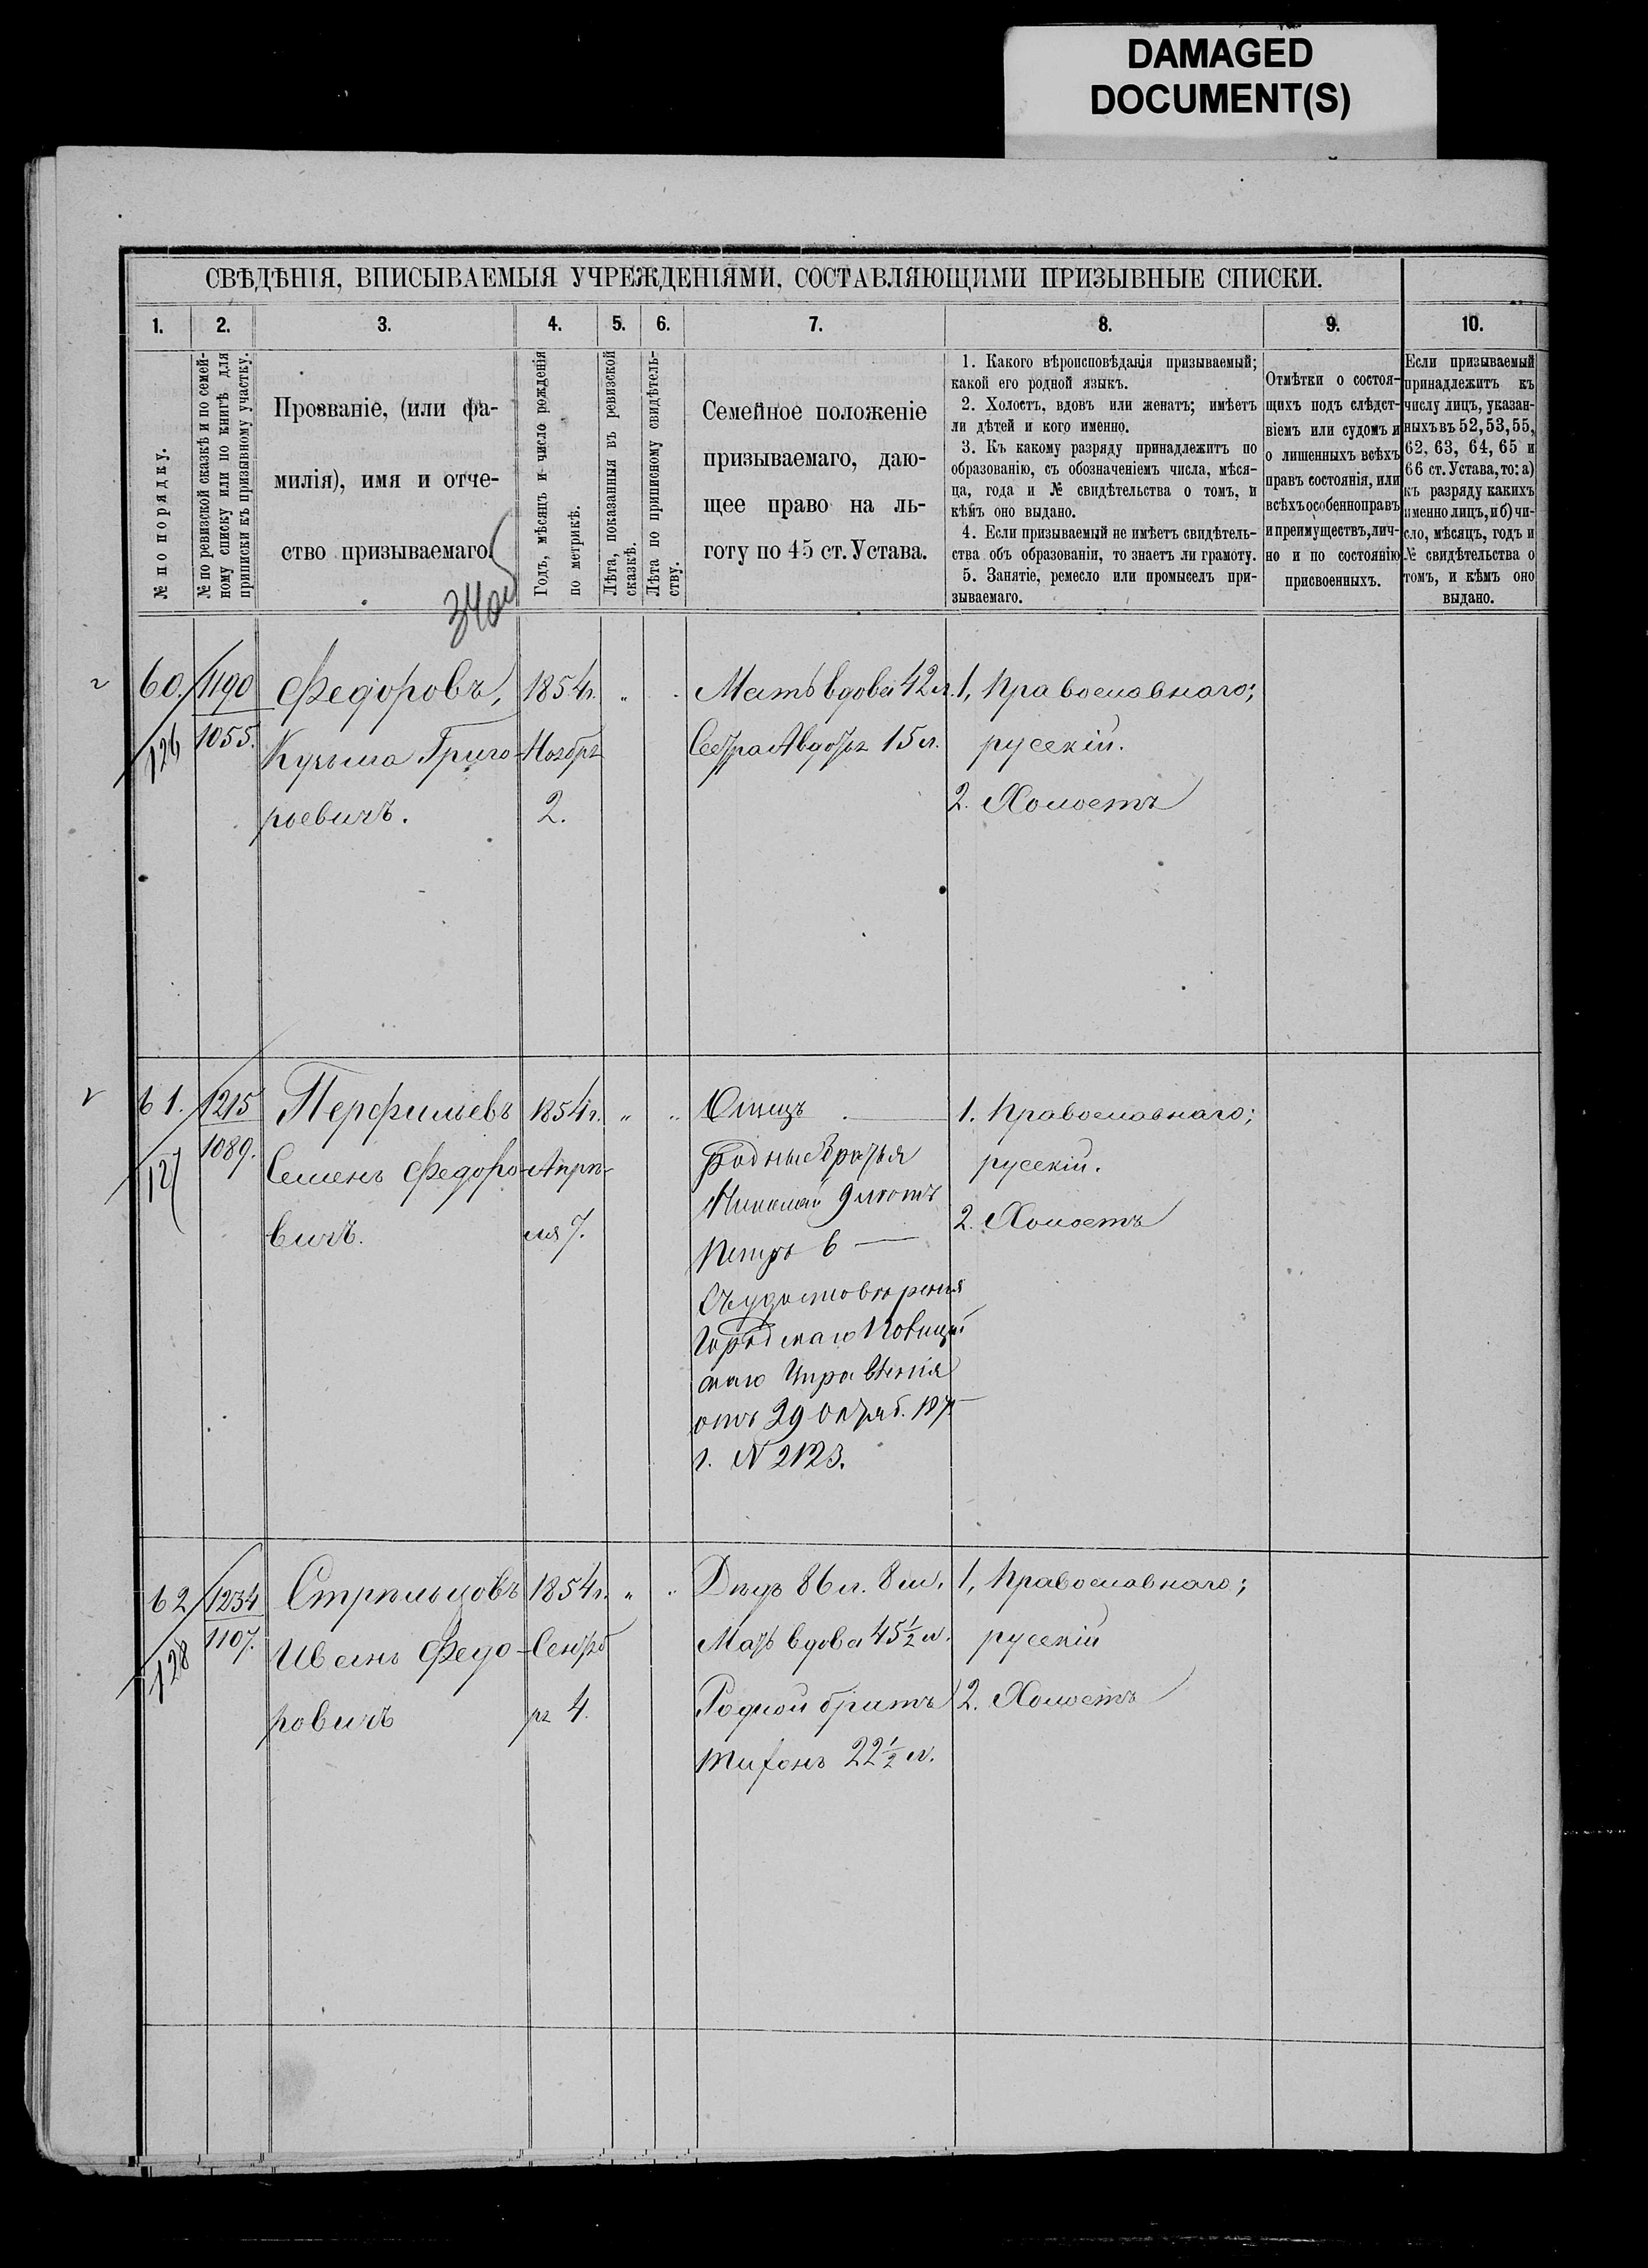 DAMAGED
DOCUMENT(S)
СВѢДѢНІЯ, ВПИСЫВАЕМЫЯ УЧРЕЖДЕНІЯМИ, СОСТАВЛЯЮЩИМИ ПРИЗЫВНЫЕ СПИСКИ.
1.
2.
3.
4.
5.
6.
7.
8.
9.
10.
№ по порядку.
№ по ревизской сказкѣ и по семей-
ному списку или по книгѣ для
приписки къ призывному участку.
Прозваніе, (или фа-
милія), имя и отче-
ство призываемаго.
Годъ, мѣсяцъ и число рожденія
по метрикѣ.
Лѣта, показанныя въ ревизской
сказкѣ.
Лѣта по приписному свидѣтель-
ству.
Семейное положеніе
призываемаго, даю-
щее право на ль-
готу по 45 ст. Устава.
1. Какого вѣроисповѣданія призываемый;
какой его родной языкъ.
2. Холостъ, вдовъ или женатъ; имѣетъ
ли дѣтей и кого именно.
3. Къ какому разряду принадлежитъ по
образованію, съ обозначеніемъ числа, мѣся-
ца, года и № свидѣтельства о томъ, и
кѣмъ оно выдано.
4. Если призываемый не имѣетъ свидѣтель-
ства объ образованіи, то знаетъ ли грамоту.
5. Занятіе, ремесло или промыселъ при-
зываемаго.
Отмѣтки о состоя-
щихъ подъ слѣдст-
віемъ или судомъ и
о лишенныхъ всѣхъ
правъ состоянія, или
всѣхъ особенно правъ
и преимуществъ, лич-
но и по состоянію
присвоенныхъ.
Если призываемый
принадлежитъ къ
числу лицъ, указан-
ныхъ въ 52, 53, 55,
62, 63, 64, 65 и
66 ст. Устава, то: а)
къ разряду какихъ
именно лицъ, и б) чи-
сло, мѣсяцъ, годъ и
№ свидѣтельства о
томъ, и кѣмъ оно
выдано.
60.
126
1190
1055.
Федоровъ,
Кузьма Григо-
рьевичъ.
1854г.
Ноября
2.
Мать вдова 42 л.
Сестра Авдотья 15 л.
1, Православнаго;
русскій.
2. Холостъ
61.
127
1215
1089.
Перфильевъ
Семенъ Федоро-
вичъ.
1854г.
Апрѣ-
ля 7.
Отецъ
Родные братья
Николай 9 лѣтъ
Петръ 6 —
Съ удостовѣренія
Городскаго Полицей
скаго Управленія
отъ 29 Октяб. 187
г. N 2123.
1. Православнаго;
русскій.
2. Холостъ
62
128
1234
1107.
Стрѣльцовъ
Иванъ Федо-
ровичъ
1854г.
Сентяб
ря 4.
Дѣдъ 86 л. 8 м.
Мать вдова 45½ л.
Родной братъ
Тихонъ 22½ л.
1, Православнаго;
русскій
2. Холостъ